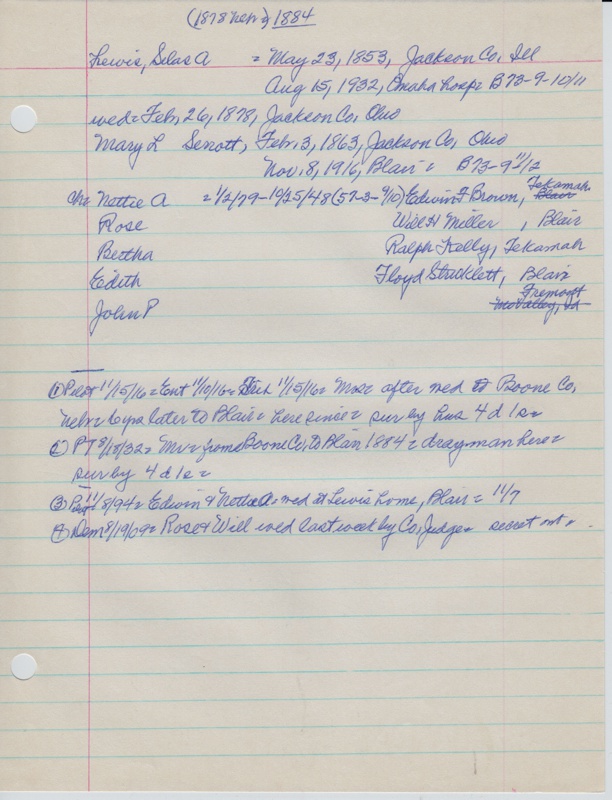 (1878 Nebr) 1884
Lewis, Silas A = May 23, 1853, Jackson Co, Ill
Aug 15, 1932, Omaha hosp = B73-9-10/11
wed = Feb, 26, 1878, Jackson Co, Ohio
Mary L Scott, Feb, 3, 1863, Jackson Co, Ohio
Nov, 8, 1916, Blair = B73-9 11/12
Ch = Nettie A = 1/2/79-10/25/48 (57-3-9/10) Edwin F Brown, Tekamah Blair
Rose Will H Miller, Blair
Bertha Ralph Kelly, Tekamah
Edith Floyd Stricklett, Blair
John P Fremont Mo Valley, Ia
① Pilot 11/15/16 = Ent 11/10/16 = 11/15/16 = Mrs = after wed to Boone Co,
Nebr = 6 yrs later to Blair = here since = sur by hus 4 d 1 s =
② PT 8/18/32 = Mr = from Boone Co, to Blair 1884 = drayman here =
sur by 4 d 1 s =
③ 11/8/94 = Edwin & Nettie A = wed at Lewis home, Blair = 11/7
④ Dem 8/19/09 = Rose & Will wed last week by Co, Judge = secret out =